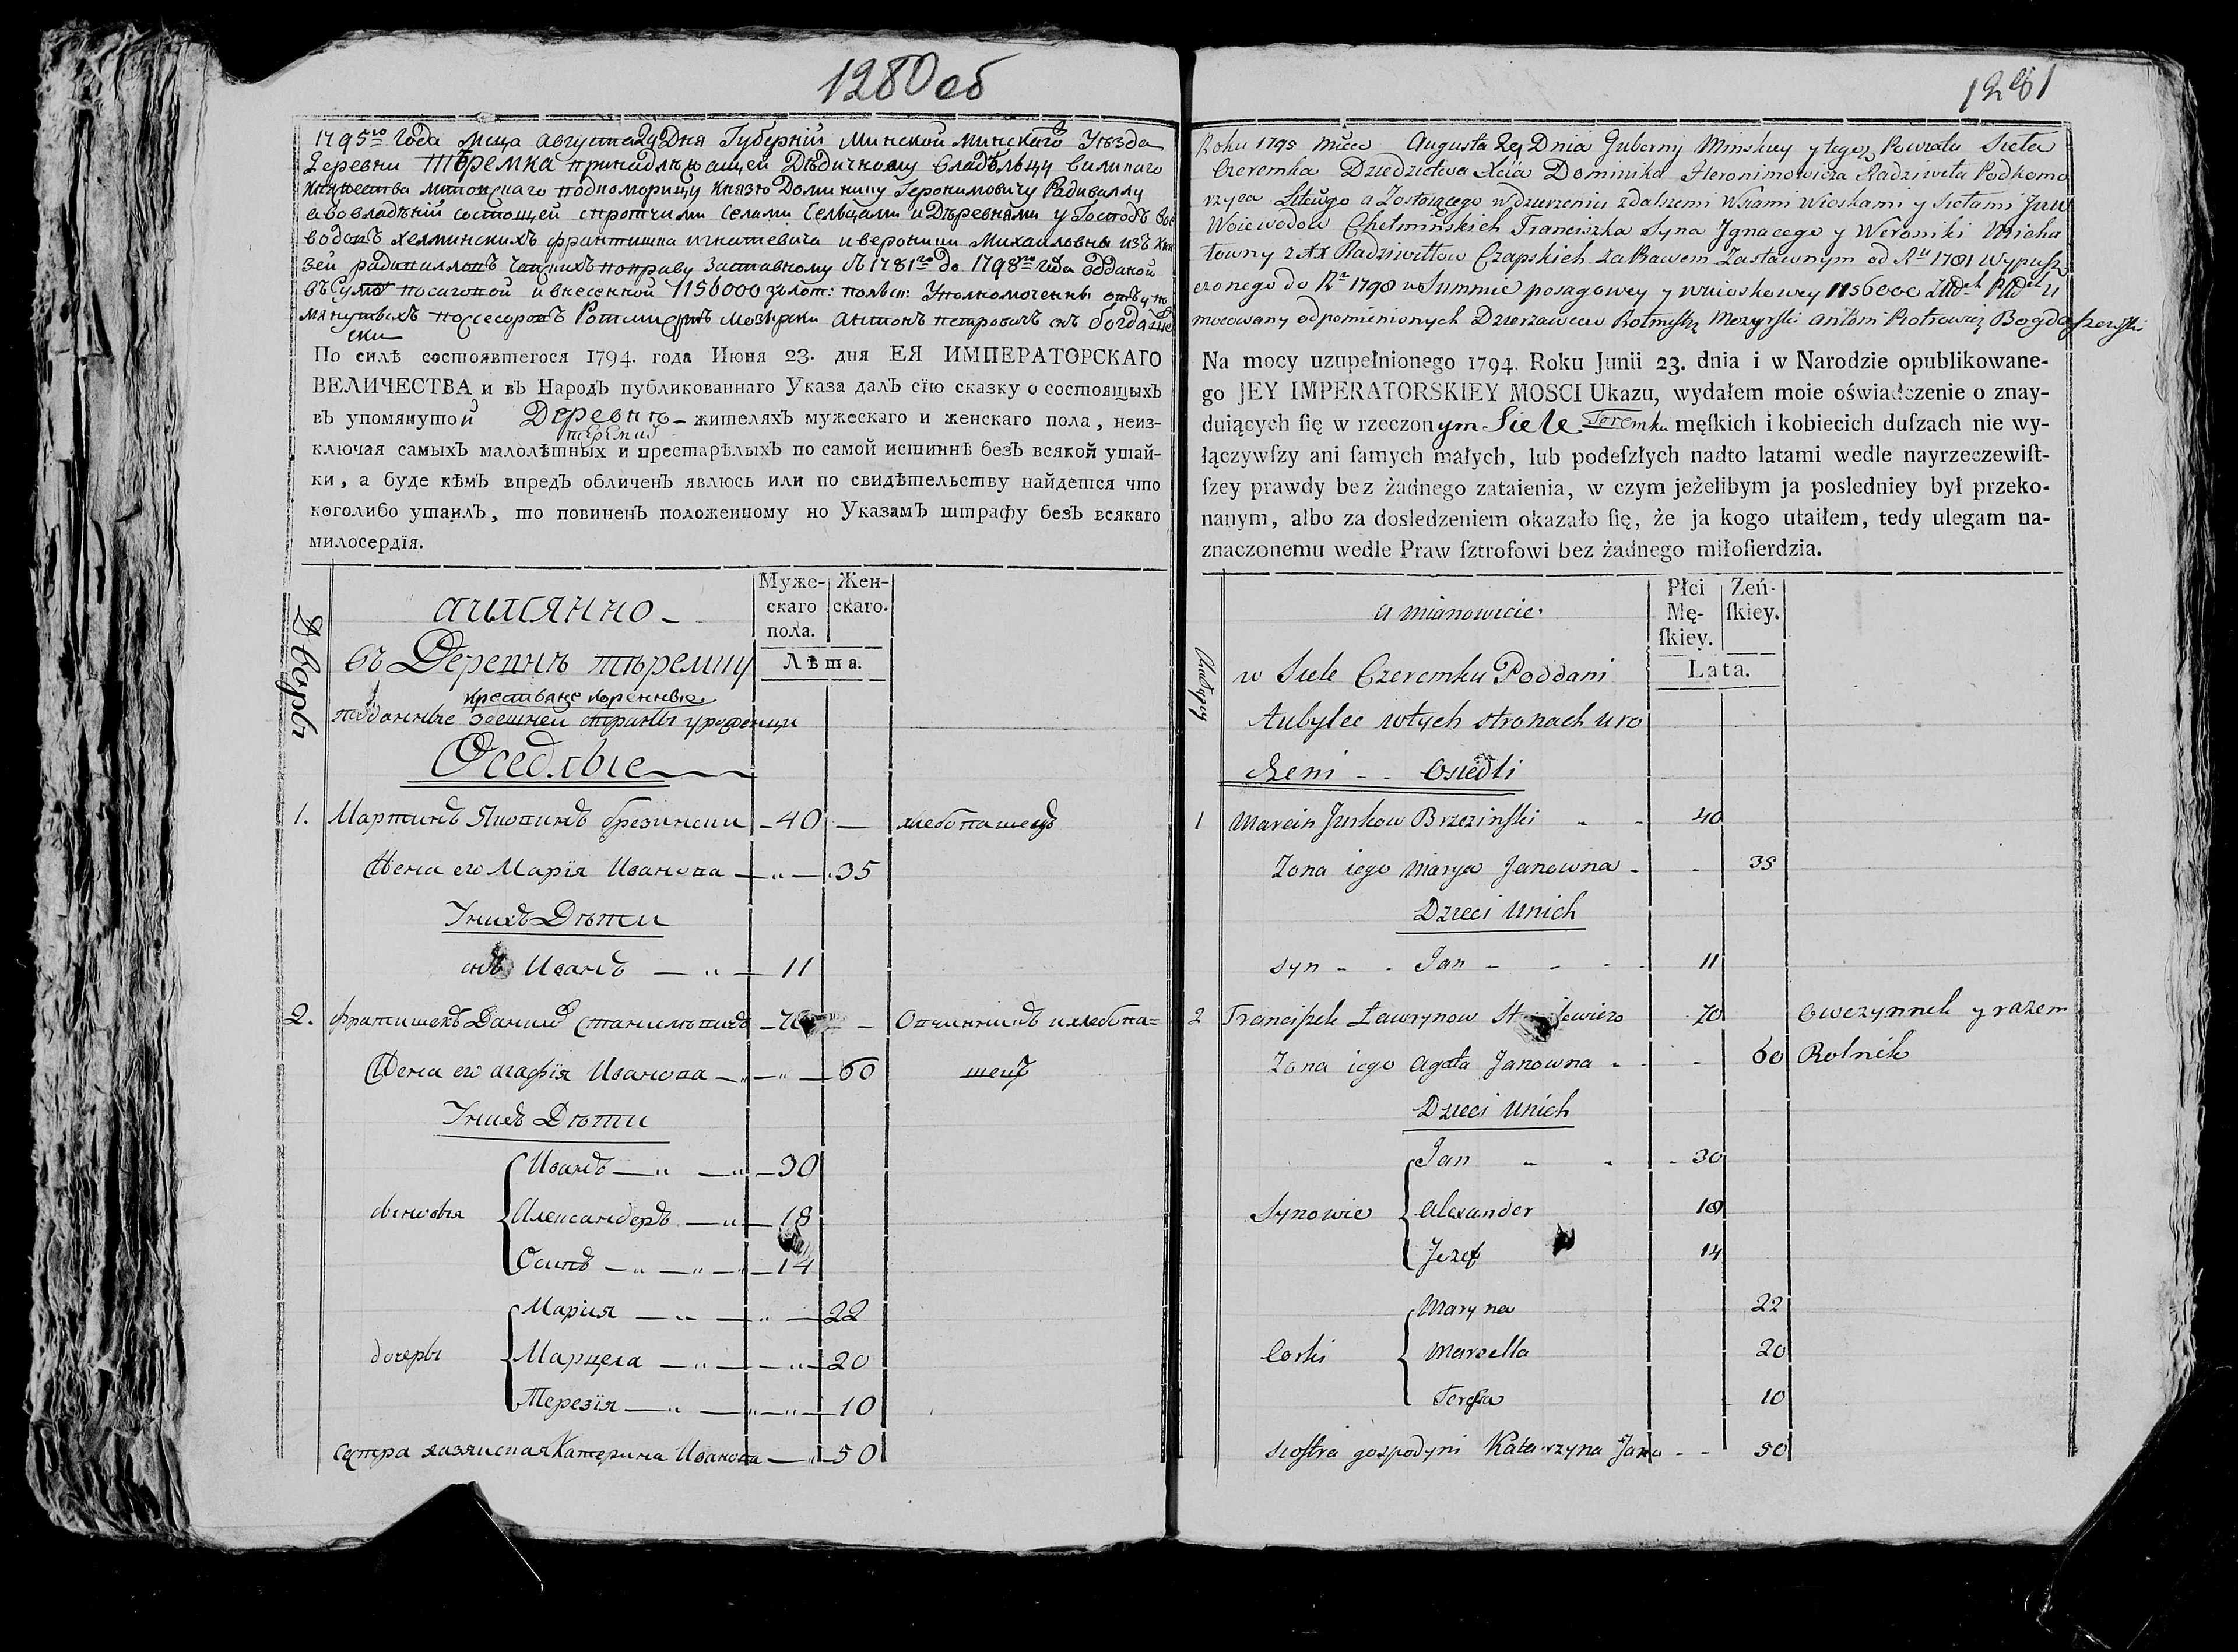 1280 об
1795го Года Мсца августа 29 Дня Губерній Минской Минского Уѣзда
Деревни Тѣремка принадлѣжащей Дѣдичному владѣльцу великаго
княжества литовскаго подкоморищу князю Доминику Геронимовичу Радивиллу
а во владѣній состоящей с протчими селами сельцами и Дѣревнями у Господъ вое
водовъ хелминскихъ франтишка игнатевича и вероники Михаиловны изъ кня
зей радивилловъ чапскихъ по праву заставному съ 1781го до 1798го года отданой
въ суммѣ посаговой и внесенной 1156000 золот: полск: Уполномоченны отъ упо
мянутыхъ посесоровъ Ротмистръ мозырски антонъ петровичъ снъ богдаше
ски
По силѣ состоявшегося 1794. года Июня 23. дня ЕЯ ИМПЕРАТОРСКАГО
ВЕЛИЧЕСТВА и въ Народъ публикованнаго Указа далъ сїю сказку о состоящыхъ
въ упомянутой Деревнѣ – жителяхъ мужескаго и женскаго пола, неиз-
ключая самыхъ малолѣтныхъ и престарѣлыхъ по самой истиннѣ безъ всякой утай-
ки, а буде кѣмъ впредъ обличенъ явлюсь или по свидѣтельству найдется что
коголибо утаилъ, то повиненъ положенному по Указамъ штрафу безъ всякаго
милосердїя.
Дворы
аимянно
Муже-
скаго
пола.
Жен-
скаго.
Лѣта.
въ Деревнѣ тѣремку
крестьяне коренные
подданные здешней страны уроженци
Оседлые
1. Мартинъ Якопинъ брезински – 40 — хлебопашецъ
Жена его Марїя Иванова — 35
У нихъ Дѣти
снъ Иванъ — 11
2. франтишекъ – 70 — Опчинникъ и хлебопа=
Жена его агафїя Иванова — 60 шецъ
У нихъ Дѣти
Иванъ — 30
сыновья Александеръ — 18
Осипъ — 14
Марїя — 22
дочеры Марцела — 20
Терезїя — 10
Сестра хазяиская Катерина Иванова — 50
1281
Roku 1795 Mсca Augusta 29 Dnia Gubernij Minskiey y tegoż Powiatu Sieła
Czeremka Dziedzictwa Xcia Dominika Hieronimowicza Radziwiła Podkomo
rzyca Littgo a Zostaiącego w dzierzeniu z dalszemi Wsiami Wioskami y siołami JWW
Woiewodow Chełmińskich Franciszka syna Jgnacego y Weroniki Micha
łowny z XX Radziwiłłow Czapskich za Prawem Zastawnym od Ru 1781 wypusz
czonego do Ru 1798 w Summie posagowey y wnioskowey 1156000 U
mocowany od pomienionych Dzierżawcow Rotmistrz Mozyrski Antoni Piotrowicz Bogdaszewski
Na mocy uzupełnionego 1794. Roku Junii 23. dnia i w Narodzie opublikowane-
go JEY IMPERATORSKIEY MOSCI Ukazu, wydałem moie oświadczenie o znay-
duiących ſię w rzeczonym Siele Teremku męſkich i kobiecich duſzach nie wy-
łączywſzy ani ſamych małych, lub podeſzłych nadto latami wedle nayrzeczewiſt-
ſzey prawdy bez żadnego zataienia, w czym jeżelibym ja posledniey był przeko-
nanym, albo za dosledzeniem okazało ſię, że ja kogo utaiłem, tedy ulegam na-
znaczonemu wedle Praw ſztrofowi bez żadnego miłoſierdzia.
a mianowicie
Płci
Mę-
ſkiey.
Zeń-
ſkiey.
Lata.
w Siele Czeremku Poddani
Tubylce w tych stronach uro
dzeni - - Osiedli
1 Marcin Jurkow Brzezinski - - 40
Zona iego Marya Janowna - - 35
Dzieci u nich
syn - - Jan - - - 11
2 Franciszek Ławrynow 70 Owczynnik y razem
Zona iego Agata Janowna - - 60 Rolnik
Dzieci u nich
Jan - - 30
Synowie Alexander 18
Jozef 14
Maryna 22
Corki Marcella 20
Teressa 10
siostra gospodyni Katarzyna Jano - - 50